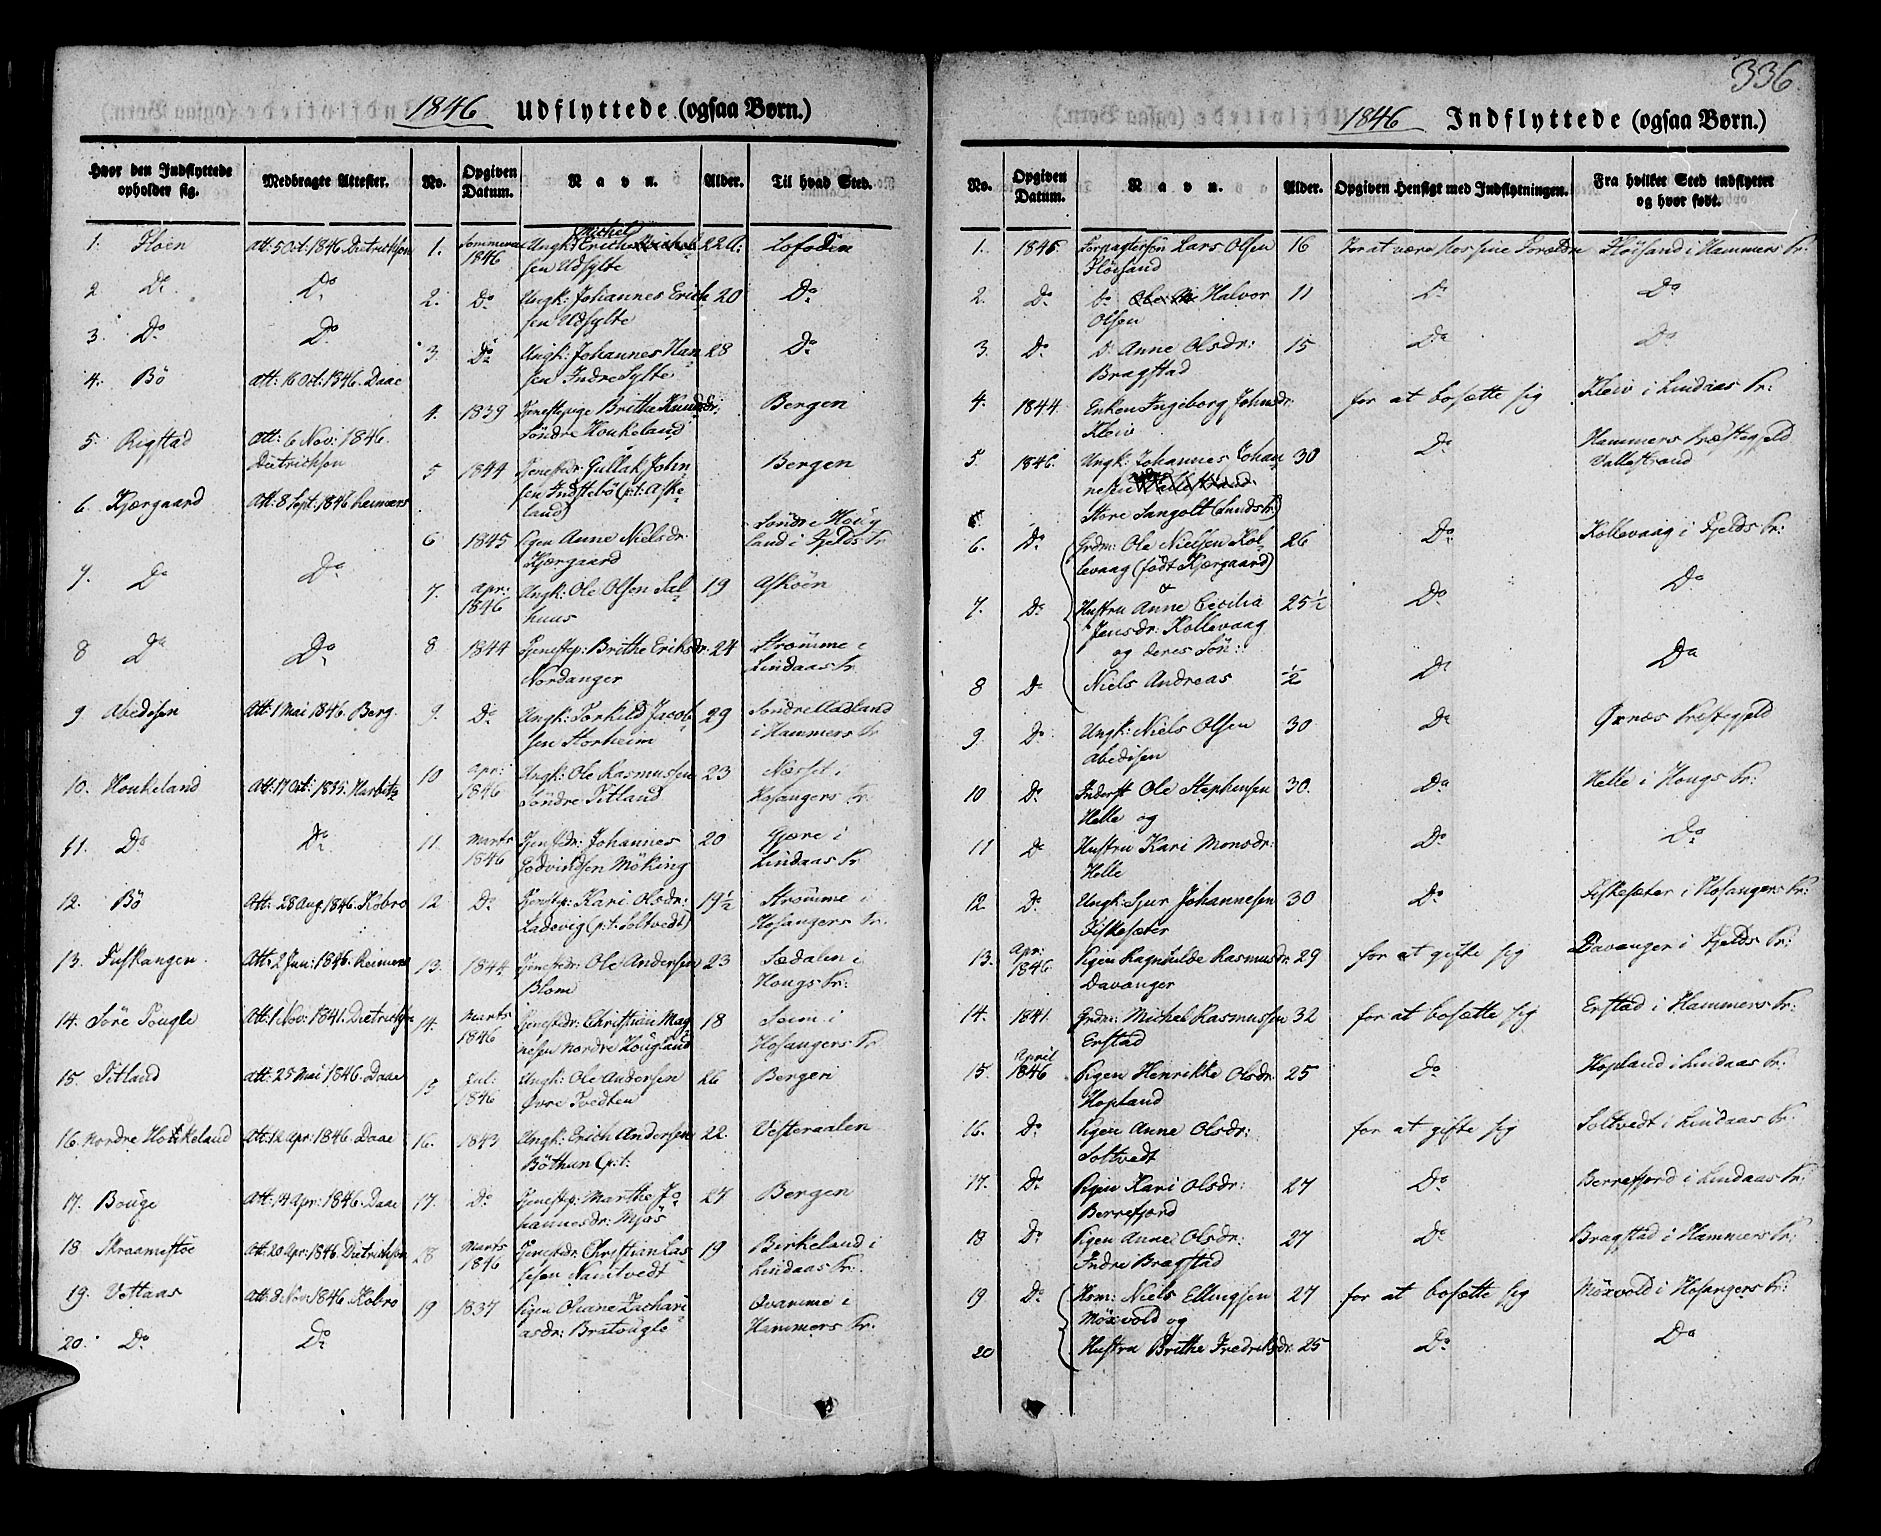 336.
1846 Udflyttede (ogsaa Børn.)
Hvor den Indflyttede opholder sig. Medbragte Attester. No. Opgiven Datum. Navn. Alder. Til hvad Sted.
1. Floen Att: 5 Oct: 1846. Dietrichson
2 Do. Do.
3. Do. Do.
4. Bö Att: 16 Oct: 1846. Daae
5. Rigstad Att: 6 Nov: 1846.
Dietrichson
6. Kjærgaard Att: 8 Sept: 1846 Reimers
7. Do Do
8 Do Do
9 Abedisen Att: 1 Mai 1846. Berg.
10. Houkeland Att: 17 Oct: 1835. Harbitz
11. Do Do
12. Bö Att: 28 Aug 1846. Kobro
13. Tuskangen Att: 2 Jun: 1846. Reimers
14. Söre Tougle Att: 1 Nov: 1841. Dietrichson
15. Titland Att: 25 Mai 1846. Daae
16. Nordre Houkeland Att: 12 Apr: 1846. Daae
17. Bouge Att: 4 Apr: 1846. Daae
18. Skraamestöe Att: 20 Apr: 1846. Dietrichson
19. Vettaas Att: 8 Nov 1846. Kobro
20. Do Do
1. Sommeren Michel
1846 Ungk: Erich 22 Lofoden
sen Udsylte
2. Do. Ungk: Johannes Erich 20 Do
sen Udsylte
3. Do Ungk: Johannes Han 28 Do
sen Indre Sylte
4. 1839 Tjenestepige Brithe Knudsdr: Bergen
Söndre Houkeland
5 1844 Tjenestedr: Gullak John Bergen
sen Indstebö (p:t: Aske
land)
6 1845 Pigen Anne Nielsdr. Söndre Houg
Kjærgaard land i Fjelds Pr
7. Apr: 1846 Ungk: Ole Olsen Sal 19 Askøen
huus
8 1844 Tjenestep: Brithe Eriksdr: 24 Strømme i
Nordanger Lindaas Pr.
9. Do Ungk: Torkild Jacob 29 Söndre Madland
sen Storheim i Hammers Pr
10 Apr: 1846 Ungk: Ole Rasmussen 23 Næsset i
Söndre Titland Hosangers Pr.
11. Marts 1846 Tjenstdr: Johannes 20 Gjære i
Godvindsen Möking Lindaas Pr.
12 Do Tjenstep: Kari Olsdr: 19½ Strømme i
Ladevig (p:t: Soltvedt) Hosangers Pr.
13. 1844 Tjenestedr: Ole Andersen 23 Sædalen i
Blom Hougs Pr:
14. Marts 1846 Tjenestdr: Christian Mag 18 Seim i
nesen Nordre Hougland Hosangers Pr
15 Jul: 1846 Ungk: Ole Andersen 26 Bergen
Øvre Tvedten
16. 1843 Ungk: Erich Andersen 22. Vesteraalen
Böthun (p:t:
17. Do Tjenestep: Marthe Jo 27 Bergen
hannesdr: Mjös
18 Marts 1846 Tjenestdr: Christian Las 19 Birkeland i
sesen Namtvedt Lindaas Pr:
19 1837 Pigen Oliane Zachari Qvamme i
asdr: Bratougle Hammers Pr:
1846 Indflyttede (ogsaa Børn.)
No. Opgiven Datum. Navn. Alder. Opgiven Hensigt med Indflytningen. Fra hvilket Sted indflyttet og hvor født.
1. 1846 Forpagtersön Lars Olsen 16 For at være hos sine Forældre Flöisand i Hammers Pr:
Flöisand
2. Do Do Halvor 11 Do Do
Olsen
3. Do D. Anne Olsdr: 15 Do Do
Bragstad
4. 1844. Enken Ingeborg Johnsdr. for at bosætte sig Kleiv i Lindaas Pr:
Kleiv
5. 1846. Ungk: Johannes Johan 30 Do Hammers Præstegjeld
nesen Vallestrand
Store Sangolt (Lindaas Pr)
6. Do Grdm: Ole Nielsen Kol 26 Do Kollevaag i Fjelds Pr:
levaag (födt Kjærgaard)
&
7. Do Hustru Anne Cecilia 25½ Do Do
Jensdr: Kollevaag
og deres Sön:
8 Do Niels Andreas ½ Do Do
9. Do Ungk: Niels Olsen 30 Do Ørnæs Præstegjeld
Abedisen
10 Do Inderst Ole Stephensen 30. Do Helle i Hougs Pr:
Helle og
11 Do Hustru Kari Monsdr: Do Do
Helle
12. Do Ungk: Sjur Johannesen 30 Do Fiskesæter i Hosangers Pr:
Fiskesæter
13. Apr: 1846. Pigen Ragnhilde Rasmusdr: 29 for at gifte sig Davanger i Fjelds Pr:
Davanger
14. 1841. Grdm: Michel Rasmussen 32 for at bosætte sig Erstad i Hammers Pr:
Erstad
15. April 1846 Pigen Henrikke Olsdr: 25 Do Hopland i Lindaas Pr:
Hopland
16. Do Pigen Anne Olsdr: for at gifte sig Soltvedt i Lindaas Pr
Soltvedt
17. Do Pigen Kari Olsdr: 27 Do Berrefjord i Lindaas Pr:
Berrefjord
18 Do Pigen Anne Olsdr: 27 Do Bragstad i Hammers Pr:
Indre Bragstad
19 Do Hsm: Niels Ellingsen 27 for at bosætte sig Möxvold i Hosangers Pr:
Möxvold og
20 Hustru Brithe Fredriksdr. 25 Do Do